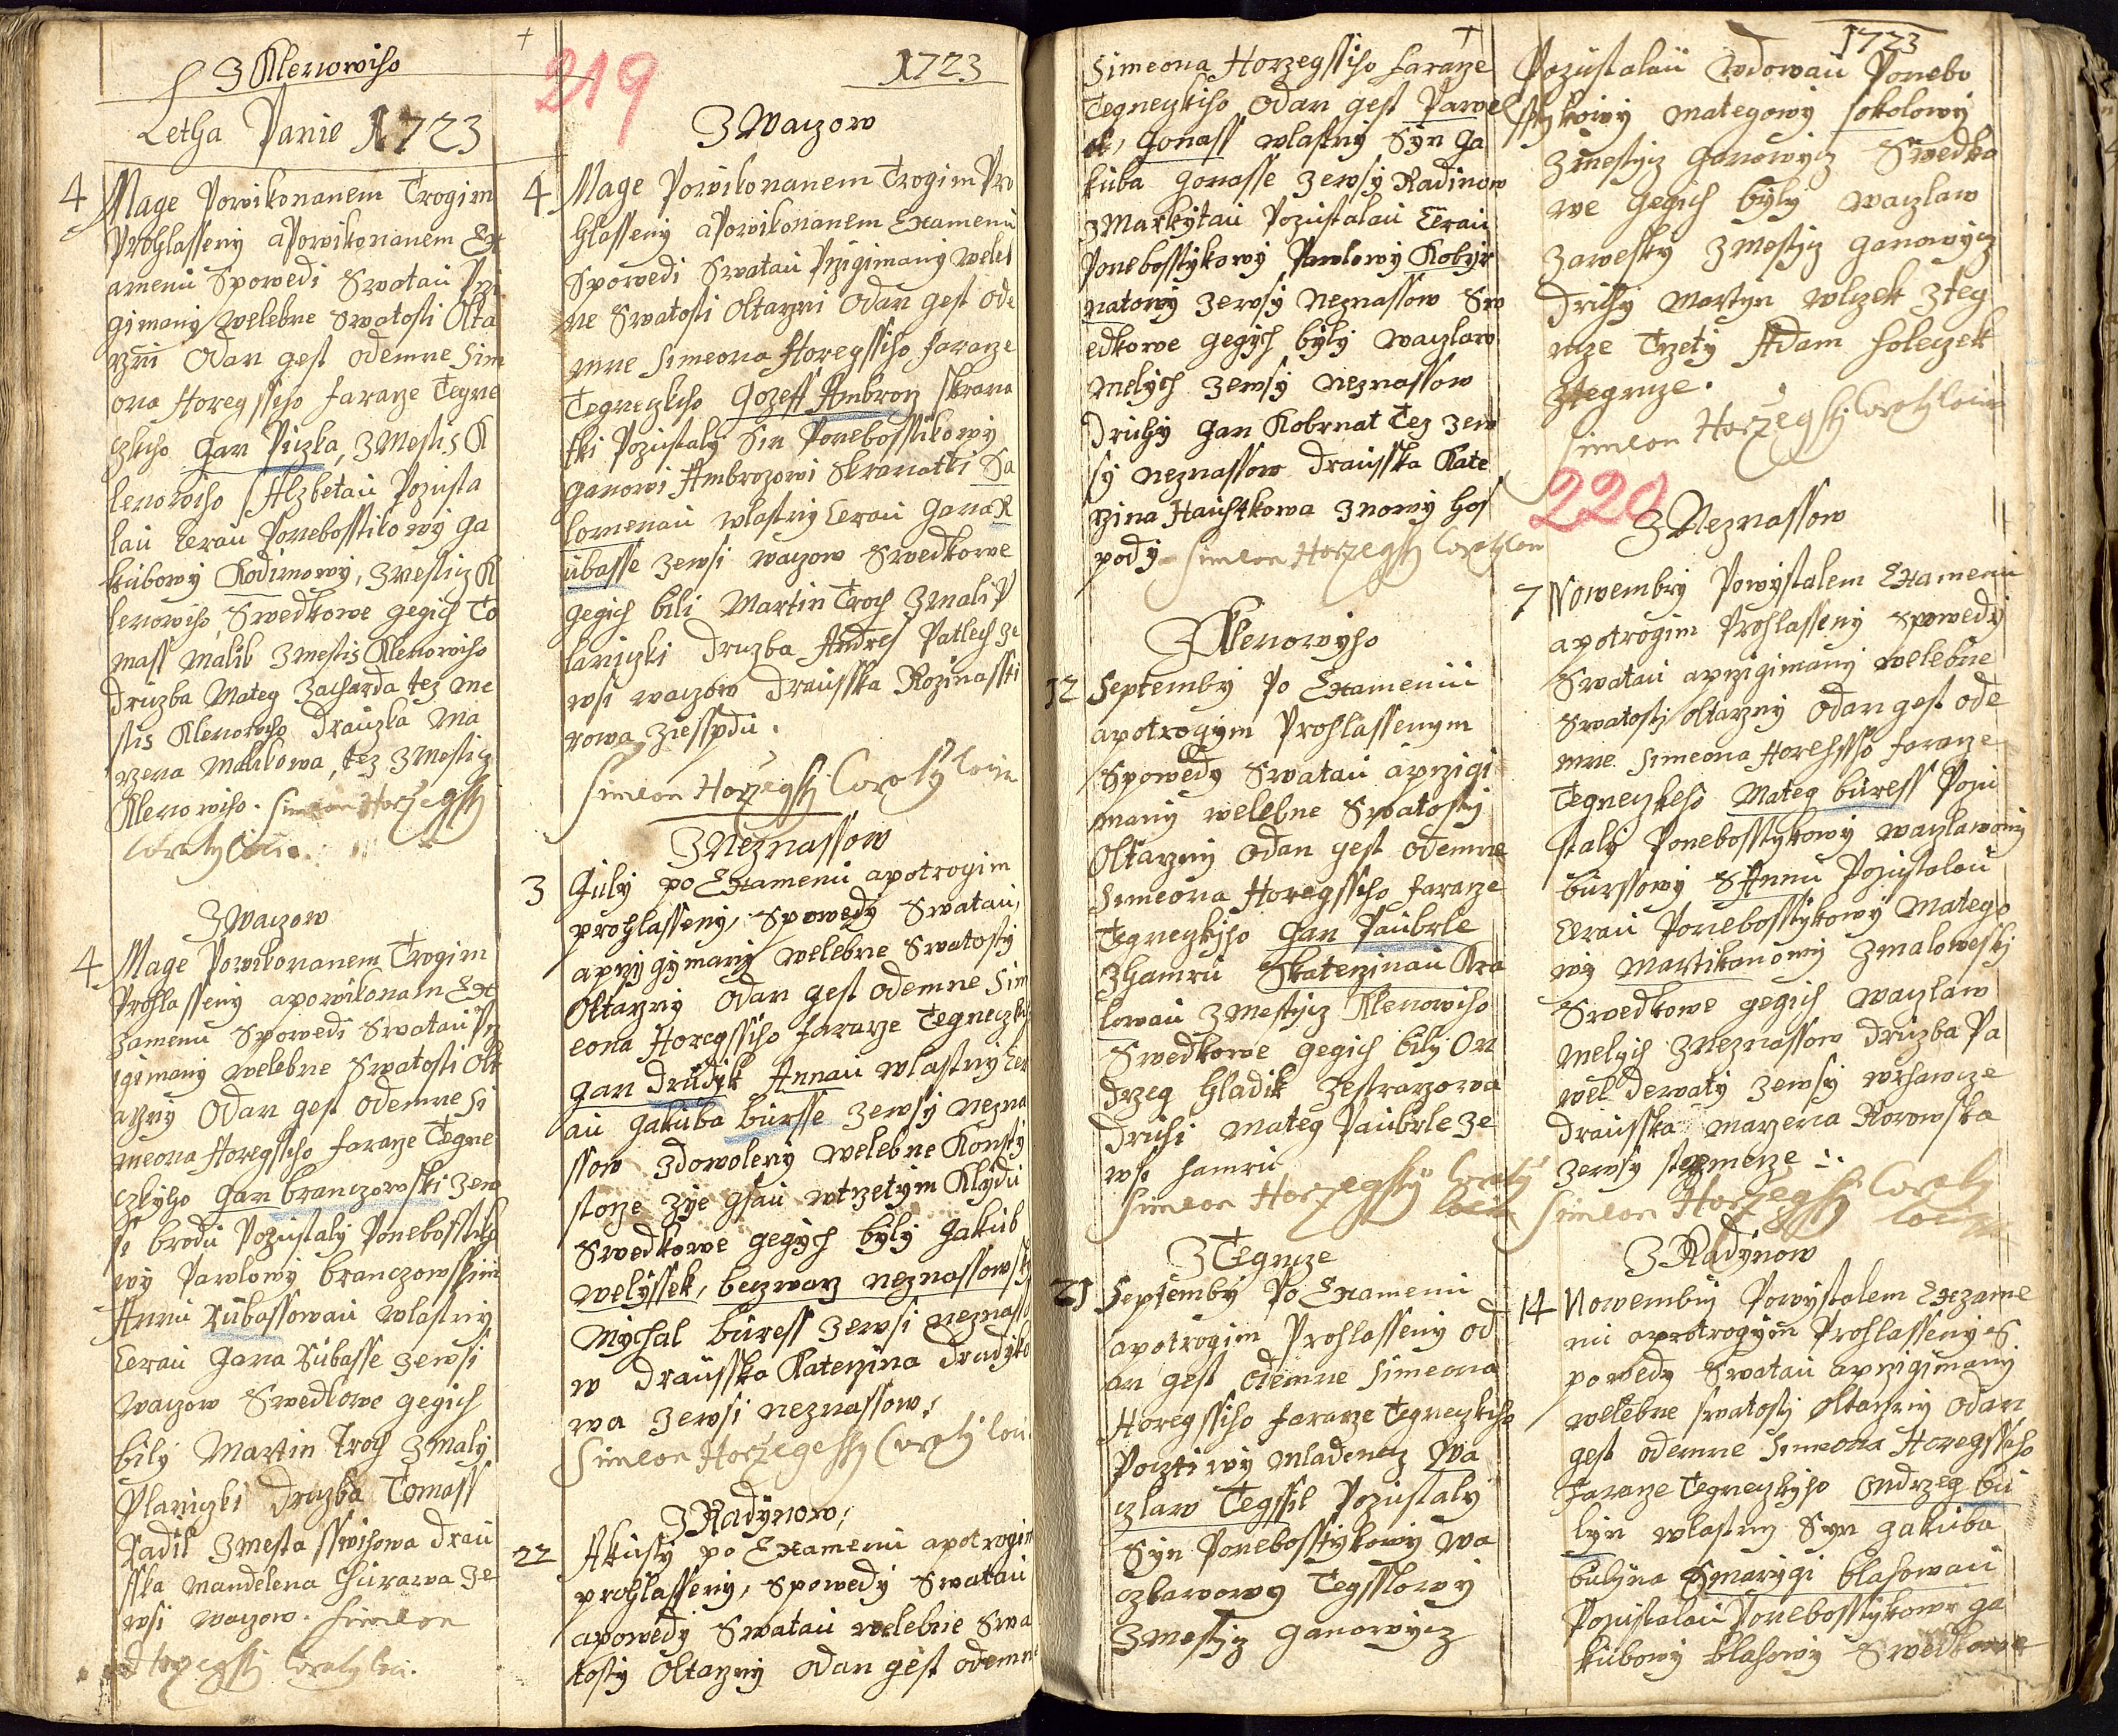 Z Klenowiho
Letha Panie 1723
4 Mage Powikonanem Trogim
Prohlasseny aPowikonanem Ex
amenu Spowedi Swatau Przi
gimany welebne Swatosti Olta
rzni Odan gest odemne Sim
ona Horegssiho faraze Tegne
czkiho Gan Piczka, Z Mestis K
lenowiho SAlzbetau Pozusta
lau Cerau Ponebosstikowy Ga
kubowy Kodimowy, Zmesticz K
lenowiho, Swedkowe gegich To
mass Malik Zmestis Klenowiho
druzba Mateg Zacharda tez me
stis Klenowiho drauzka Ma
rzena Malikowa, tez Z Mesticz
Klenowiho. Simeon Horzegssky
Z Waczow
4 Mage Powikonanem Trogim
Prohlasseny apowikonam Ex
zamenu Spowedi Swatau Prz
igimany welebne Swatosti Olt
arzny Odan gest Odemne Si
meona Horegssiho faraze Tegne
czkyho Gan branczowski zew
si brodu Pozustaly Ponebosstiko
wy Pawlowy branczowskim
Annu Kubassowau wlastny
Cerau Gana Kubasse zewsi
Waczow Swedkowe gegich
bily Martin Troch Zmaly
Planiczki druzba Tomass
Kadil Zmesta sswihowa drau
sska Mandelena Churawa Ze
wsi waczow. Simeon
219
1723
Z Waczow
4 Mage Powikonanem Trogim Pro
hlasseny aPowikonanem Examenu
Spowedi Swatau Przigimany weleb
ne Swatosti Oltarzni Odan gest ode
mne Simeona Horegssiho faraze
Tegneczkiho Gozeff Ambroz Skrana
tki Pozustaly Sin Ponebosstikowy
Ganowi Ambrozowi Skranatki Sa
lomenau wlastny Cerau Gana K
ubasse zewsi waczow Swedkowe
gegich bili Martin Troch Zmali P
laniczki druzba Andres Patlech ze
wsi waczow drausska Rozina
Z Neznassow
3 July po Examenu apotrogim
prohlasseny, Spowedy Swatau,
aprzygymany welebne Swatosty
Oltarzny Odan gest odemne Sim
eona Horegssiho faraze Tegneczkih
Gan Drudik Annau wlastny Cer
au Gakuba bursse zewsy Nezna
ssow Zdowoleny welebne Konsy
storze Zye Gsau wtrzetym Klydu
Swedkowe gegych byly Gakub
welyssek, beczwarz neznassowsky
Mychal buress zewsi neznasso
w drausska Katerzina drudyko
wa zewsi neznassow.
Z Radynow,
22 Akusty po Examenu apotrogim
prohlasseny, Spowedy Swatau
apowedy Swatau welebne Swa
tosty Oltarzny Odan gest odemne
Simeona Horzegssiho faraze
Tegneczkiho Odan gest Pawel
ek, Gonass wlastny Syn Ga
kuba Gonasse zewsy Radinow
ZMarkytau Pozustalau Cerau
Ponebosstykowy Pawlowy Kobyr
natowy zewsy neznassow Sw
edkowe gegych byly waczlaw
melych zewsy neznassow
druhy Gan Kobrnat Tez zew
sy neznassow drausska Kate
rzina Hauchtkowa Znowy hos
pody - Simeon Horzegsky
Z Klenowyho
12 Septemby Po Examenu
apotrogym Prohlassenym
Spowedy Swatau aprzigi
many welebne Swatosty
Oltarzny Odan gest odemne
Simeona Horegssiho faraze
Tegneczkyho Gan Paubrle
Zhamru Skaterzinau Kra
lowau Zmestycz Klenowiho
Swedkowe gegich bily On
drzeg hladik
druhi Mateg Paubrle ze
wsi hamru
Z Tegncze
21 Septemby Po Examenu
apotrogim Prohlasseny od
an gest odemne Simeona
Horegssiho faraze Tegneczkiho
Pocztiwy mladenecz Wa
czlaw Tegssil Pozustaly
Syn Ponebosstykowy Wa
czlawowy Tegsslowy
Zmestycz Ganowycz
1723
Pozustalau wdowau Ponebo
sstykowy Mategowy Sokolowy
Zmestycz Ganowycz Swedko
we gegich byly waczlaw
Zawesky Zmestycz Ganowycz
druhy Martyn wlczek Zteg
ncze Trzety Adam holeczek
Ztegncze.
220
Z Neznassow
7 Nowembry Powystalem Examenu
apotrogim Prohlasseny Spowedy
Swatau aprzigimany welebne
Swatosty Oltarzny Odan gest ode
mne Simeona Horehssiho faraze
Tegneczkeho Mateg buress Pozu
staly Ponebosstykowy waczlawowy
burssowy SAnnu Pozustalau
Cerau Ponebosstykowy Matego
wy Martikanowy Zmalowesky
Swedkowe gegich waczlaw
Melych Zneznassow druzba Pa
wel derwaty zewsy wrhawcze
drausska Marzena Korowska
Simeon Horzegsky
Z Radynow
14 Nowembry Powystalem Exzame
nu apotrogym Prohlasseny S
powedy Swatau aprzigimany
welebne swatosty oltarzny odan
gest odemne Simeona Horegssiho
faraze Tegneczkyho Ondrzeg bu
lyn wlastny Syn Gakuba
bulyna Smarygi blahowau
Pozustalau Ponebosstykowy Ga
kubowy blahowy Swedkowe